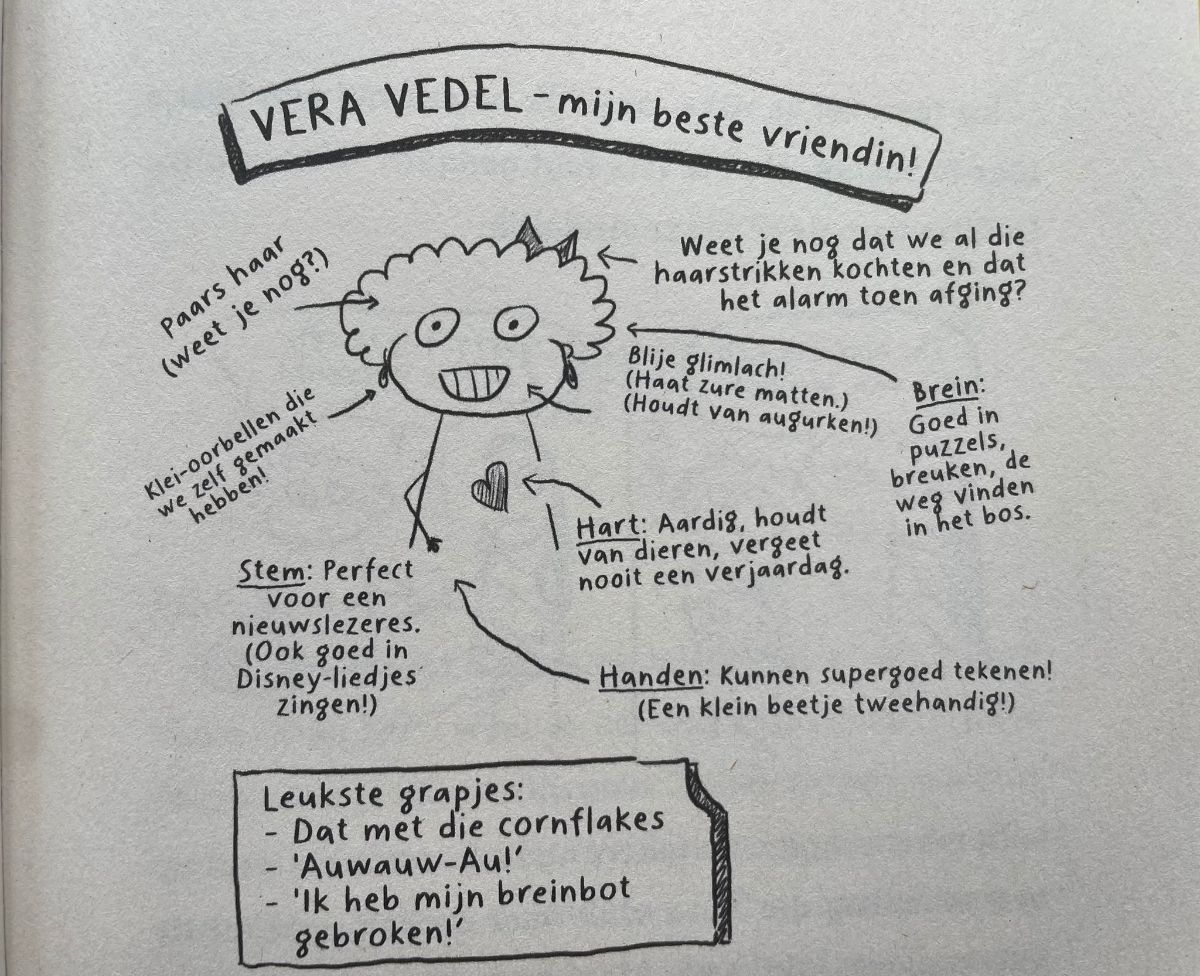 VERA VEDEL - mijn beste vriendin!
Paars haar
(weet je nog?)
Weet je nog dat we al die
haarstrikken kochten en dat
het alarm toen afging?
Klei-oorbellen die
we zelf gemaakt
hebben!
Blije glimlach!
(Haat zure matten.)
(Houdt van augurken!)
Brein:
Goed in
puzzels,
breuken, de
weg vinden
in het bos.
Hart: Aardig, houdt
van dieren, vergeet
nooit een verjaardag.
Stem: Perfect
voor een
nieuwslezeres.
(Ook goed in
Disney-liedjes
zingen!)
Handen: Kunnen supergoed tekenen!
(Een klein beetje tweehandig!)
Leukste grapjes:
- Dat met die cornflakes
- 'Auwauw-Au!'
- 'Ik heb mijn breinbot
gebroken!'